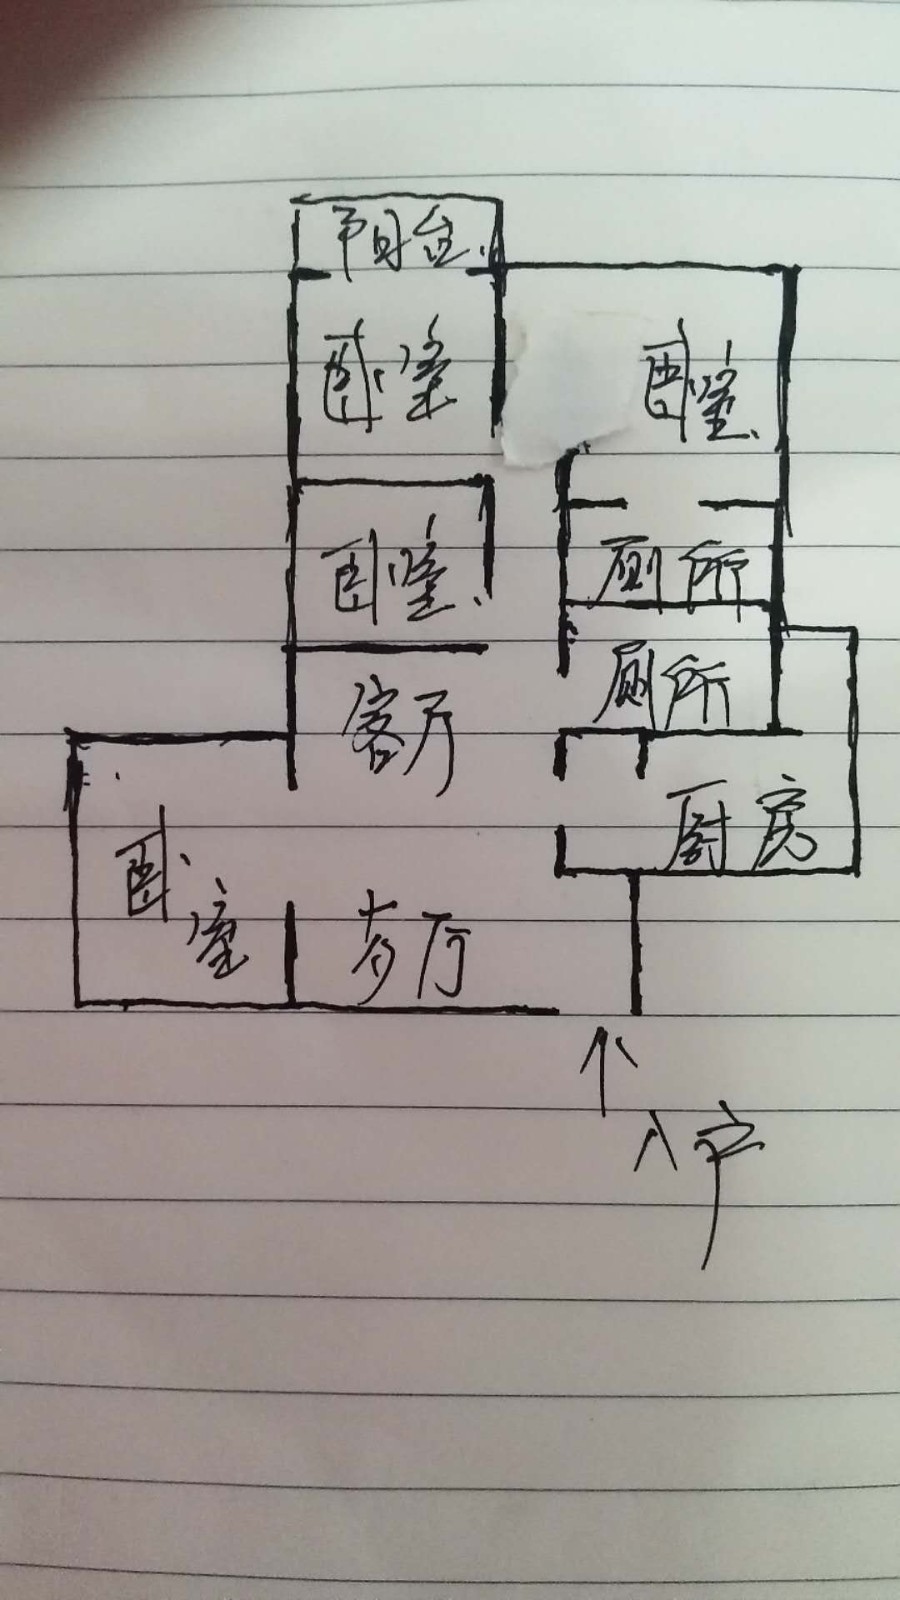 阳台
卧室
卧室
卧室
厕所
厕所
客厅
厨房
卧室
客厅
入户